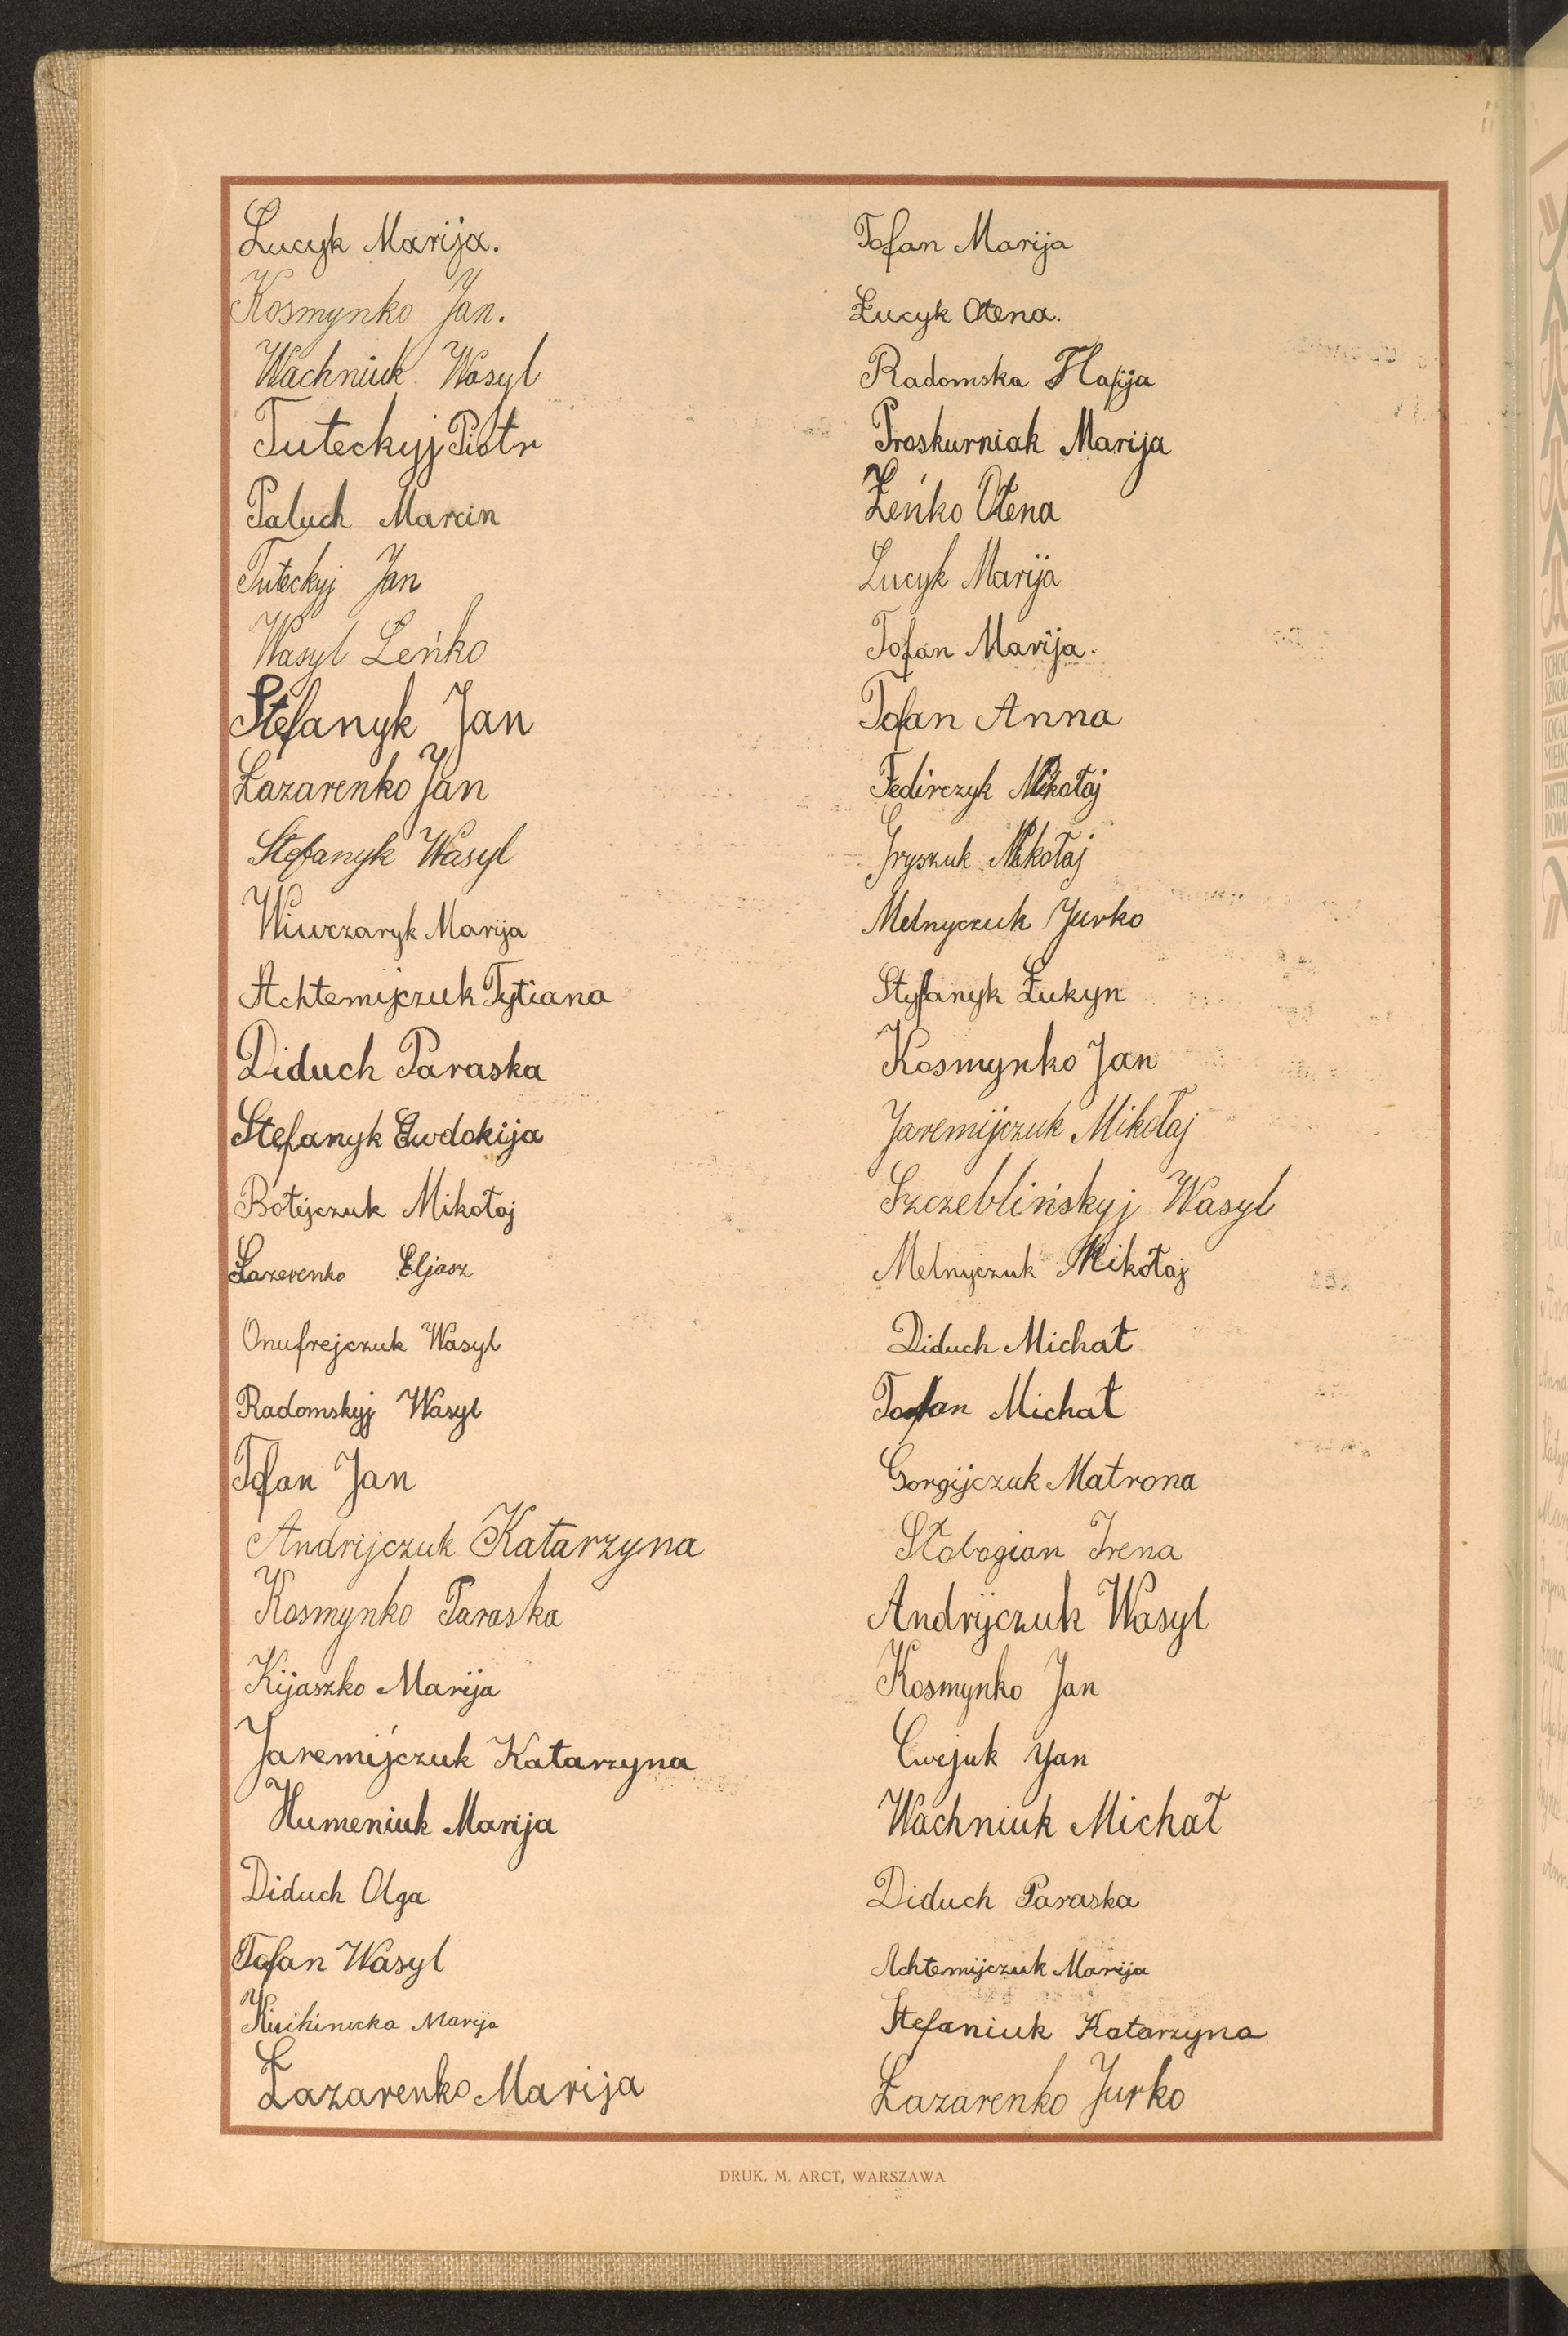 Łucyk Marija.
Kosmynko Jan.
Wachniuk Wasyl
Tuteckyj Piotr
Paluch Marcin
Tuteckyj Jan
Wasyl Leńko
Stefanyk Jan
Łazarenko Jan
Stefanyk Wasyl
Wiwczaryk Marija
Achtemijczuk Tytiana
Diduch Paraska
Stefanyk Ewdokija
Botejczuk Mikołaj
Łazerenko Eljasz
Onufrejczuk Wasyl
Radomskyj Wasyl
Tofan Jan
Andrijczuk Katarzyna
Kosmynko Paraska
Kijaszko Marija
Jaremijczuk Katarzyna
Humeniuk Marija
Diduch Olga
Tofan Wasyl
Marija
Łazarenko Marija
Tofan Marija
Łucyk Ołena.
Radomska Hafija
Proskurniak Marija
Łeńko Ołena
Lucyk Marija
Tofan Marija.
Tofan Anna
Fedirczyk Mikołaj
Gryszuk Mikołaj
Melnyczuk Jurko
Styfanyk Łukyn
Kosmynko Jan
Jaremijczuk Mikołaj
Szczeblińskyj Wasyl
Melnyczuk Mikołaj
Diduch Michał
Tofan Michał
Gorgijczuk Matrona
Słobogian Irena
Andryjczuk Wasyl
Kosmynko Jan
Cwejuk Jan
Wachniuk Michał
Diduch Paraska
Achtemijczuk Marija
Stefaniuk Katarzyna
Łazarenko Jurko
DRUK. M. ARCT, WARSZAWA